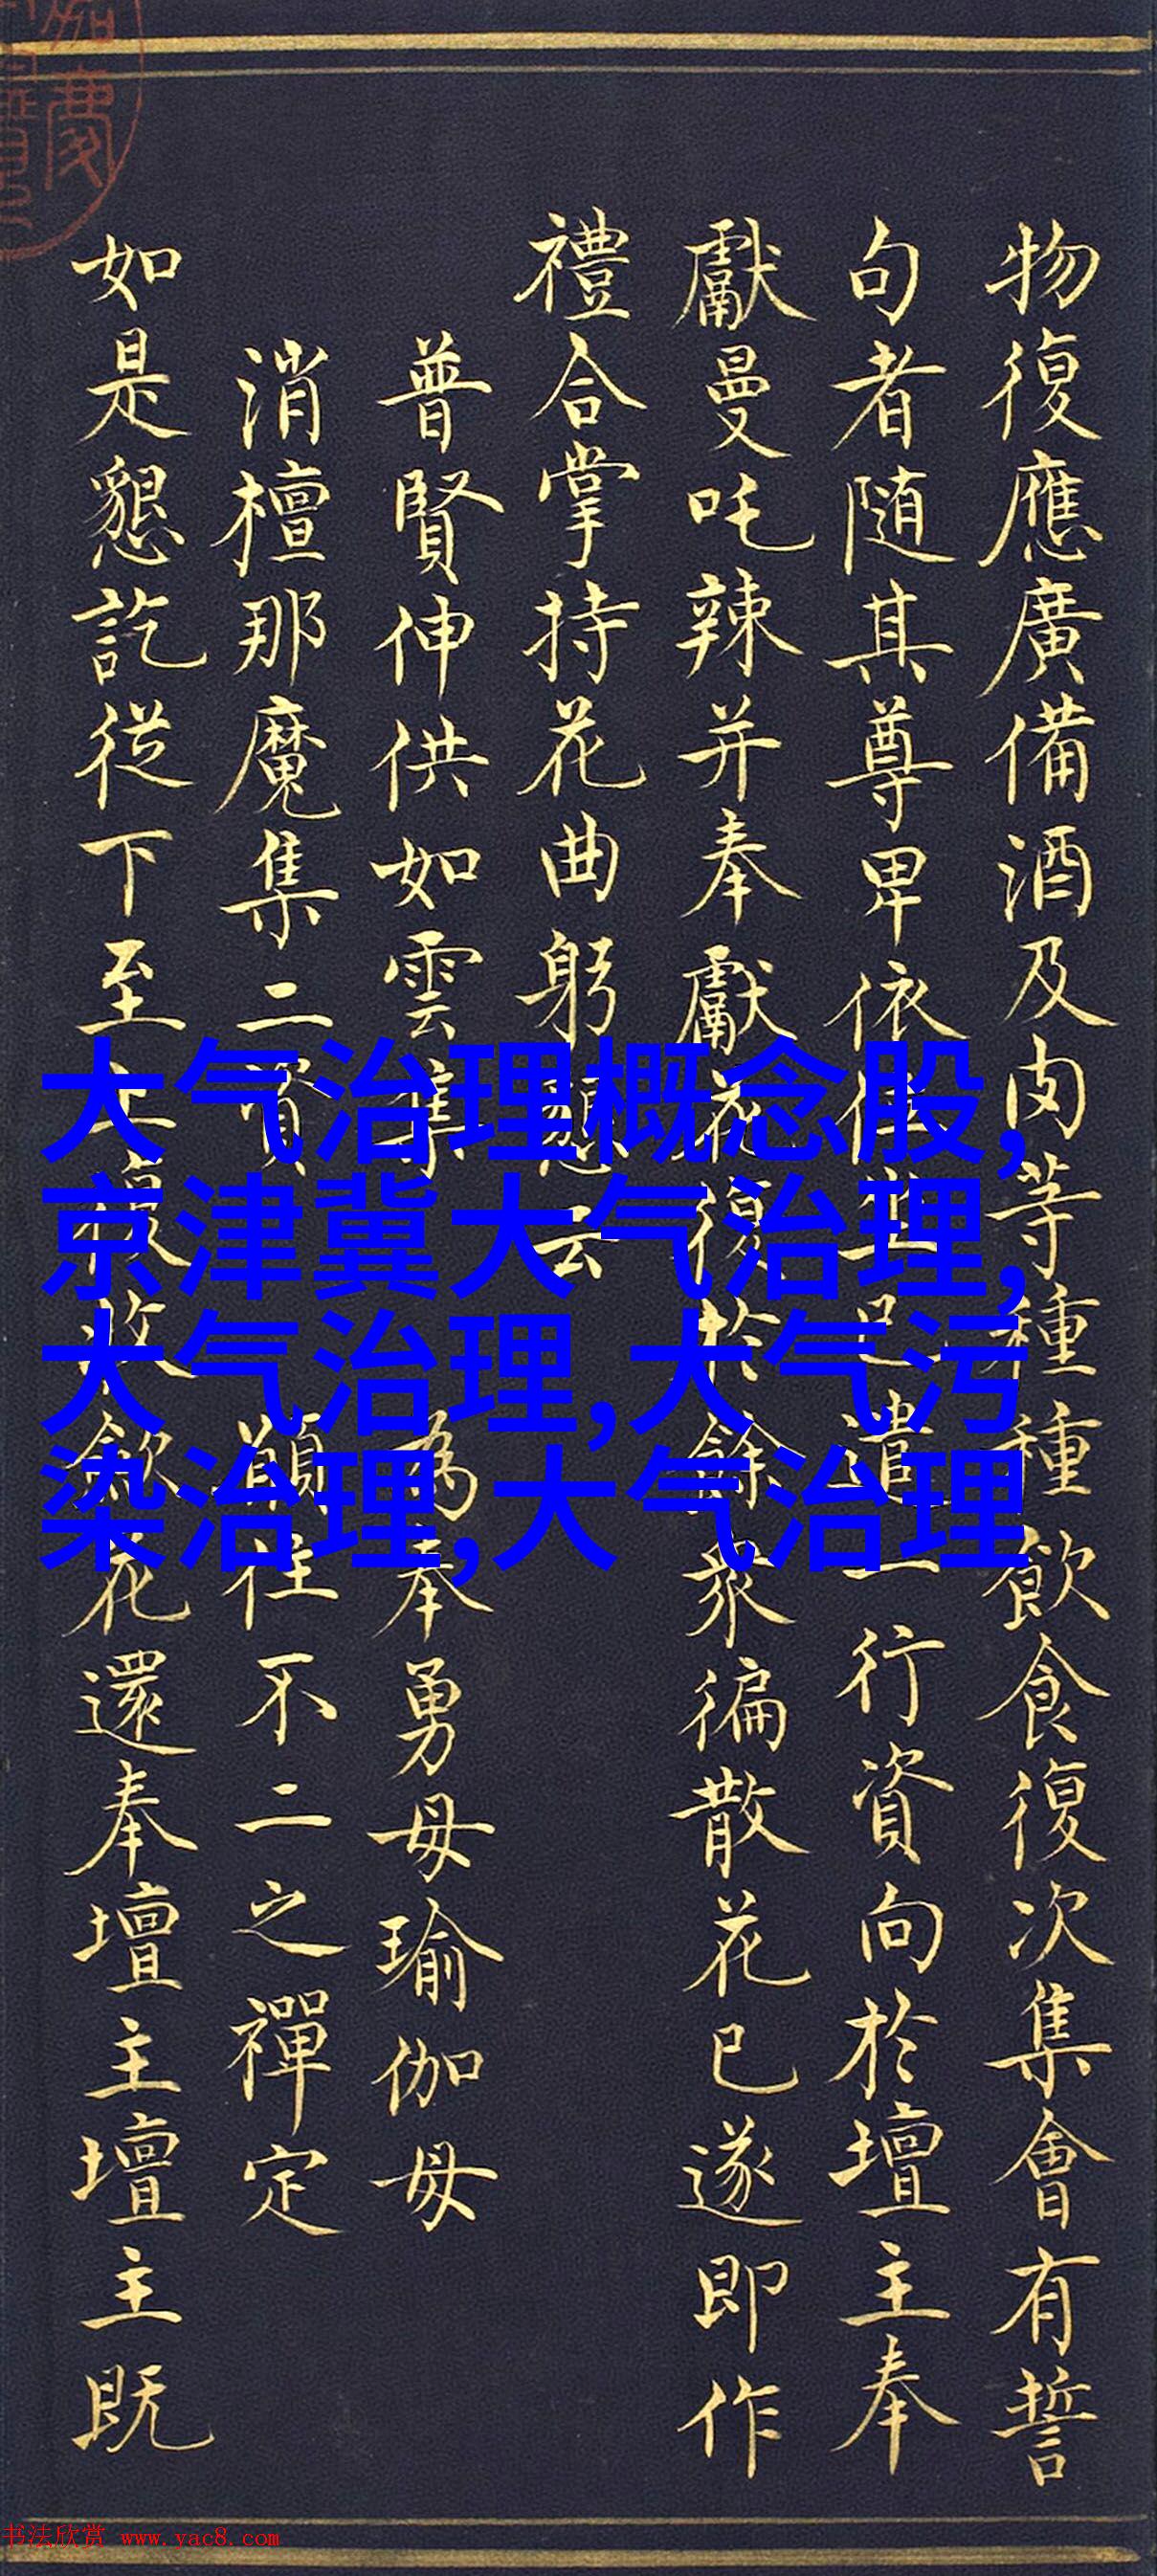 物復應廣備酒及肉等種種飲食復次集會有誓
句者随其尊卑依位坐已遣一行資向於壇主奉
獻曼吒辣并奉獻花復於餘衆徧散花已遂即作
禮合掌持花曲躬懇云
普賢伸供如雲集 為奉勇母瑜伽母
消檀那魔集二資 願住不二之禪定
如是懇訖從下至上復收歛花還奉壇主壇主既
大气治理概念股,
京津冀大气治理,
大气治理,大气污
染治理,大气治理
书法欣赏 www.yac8.com